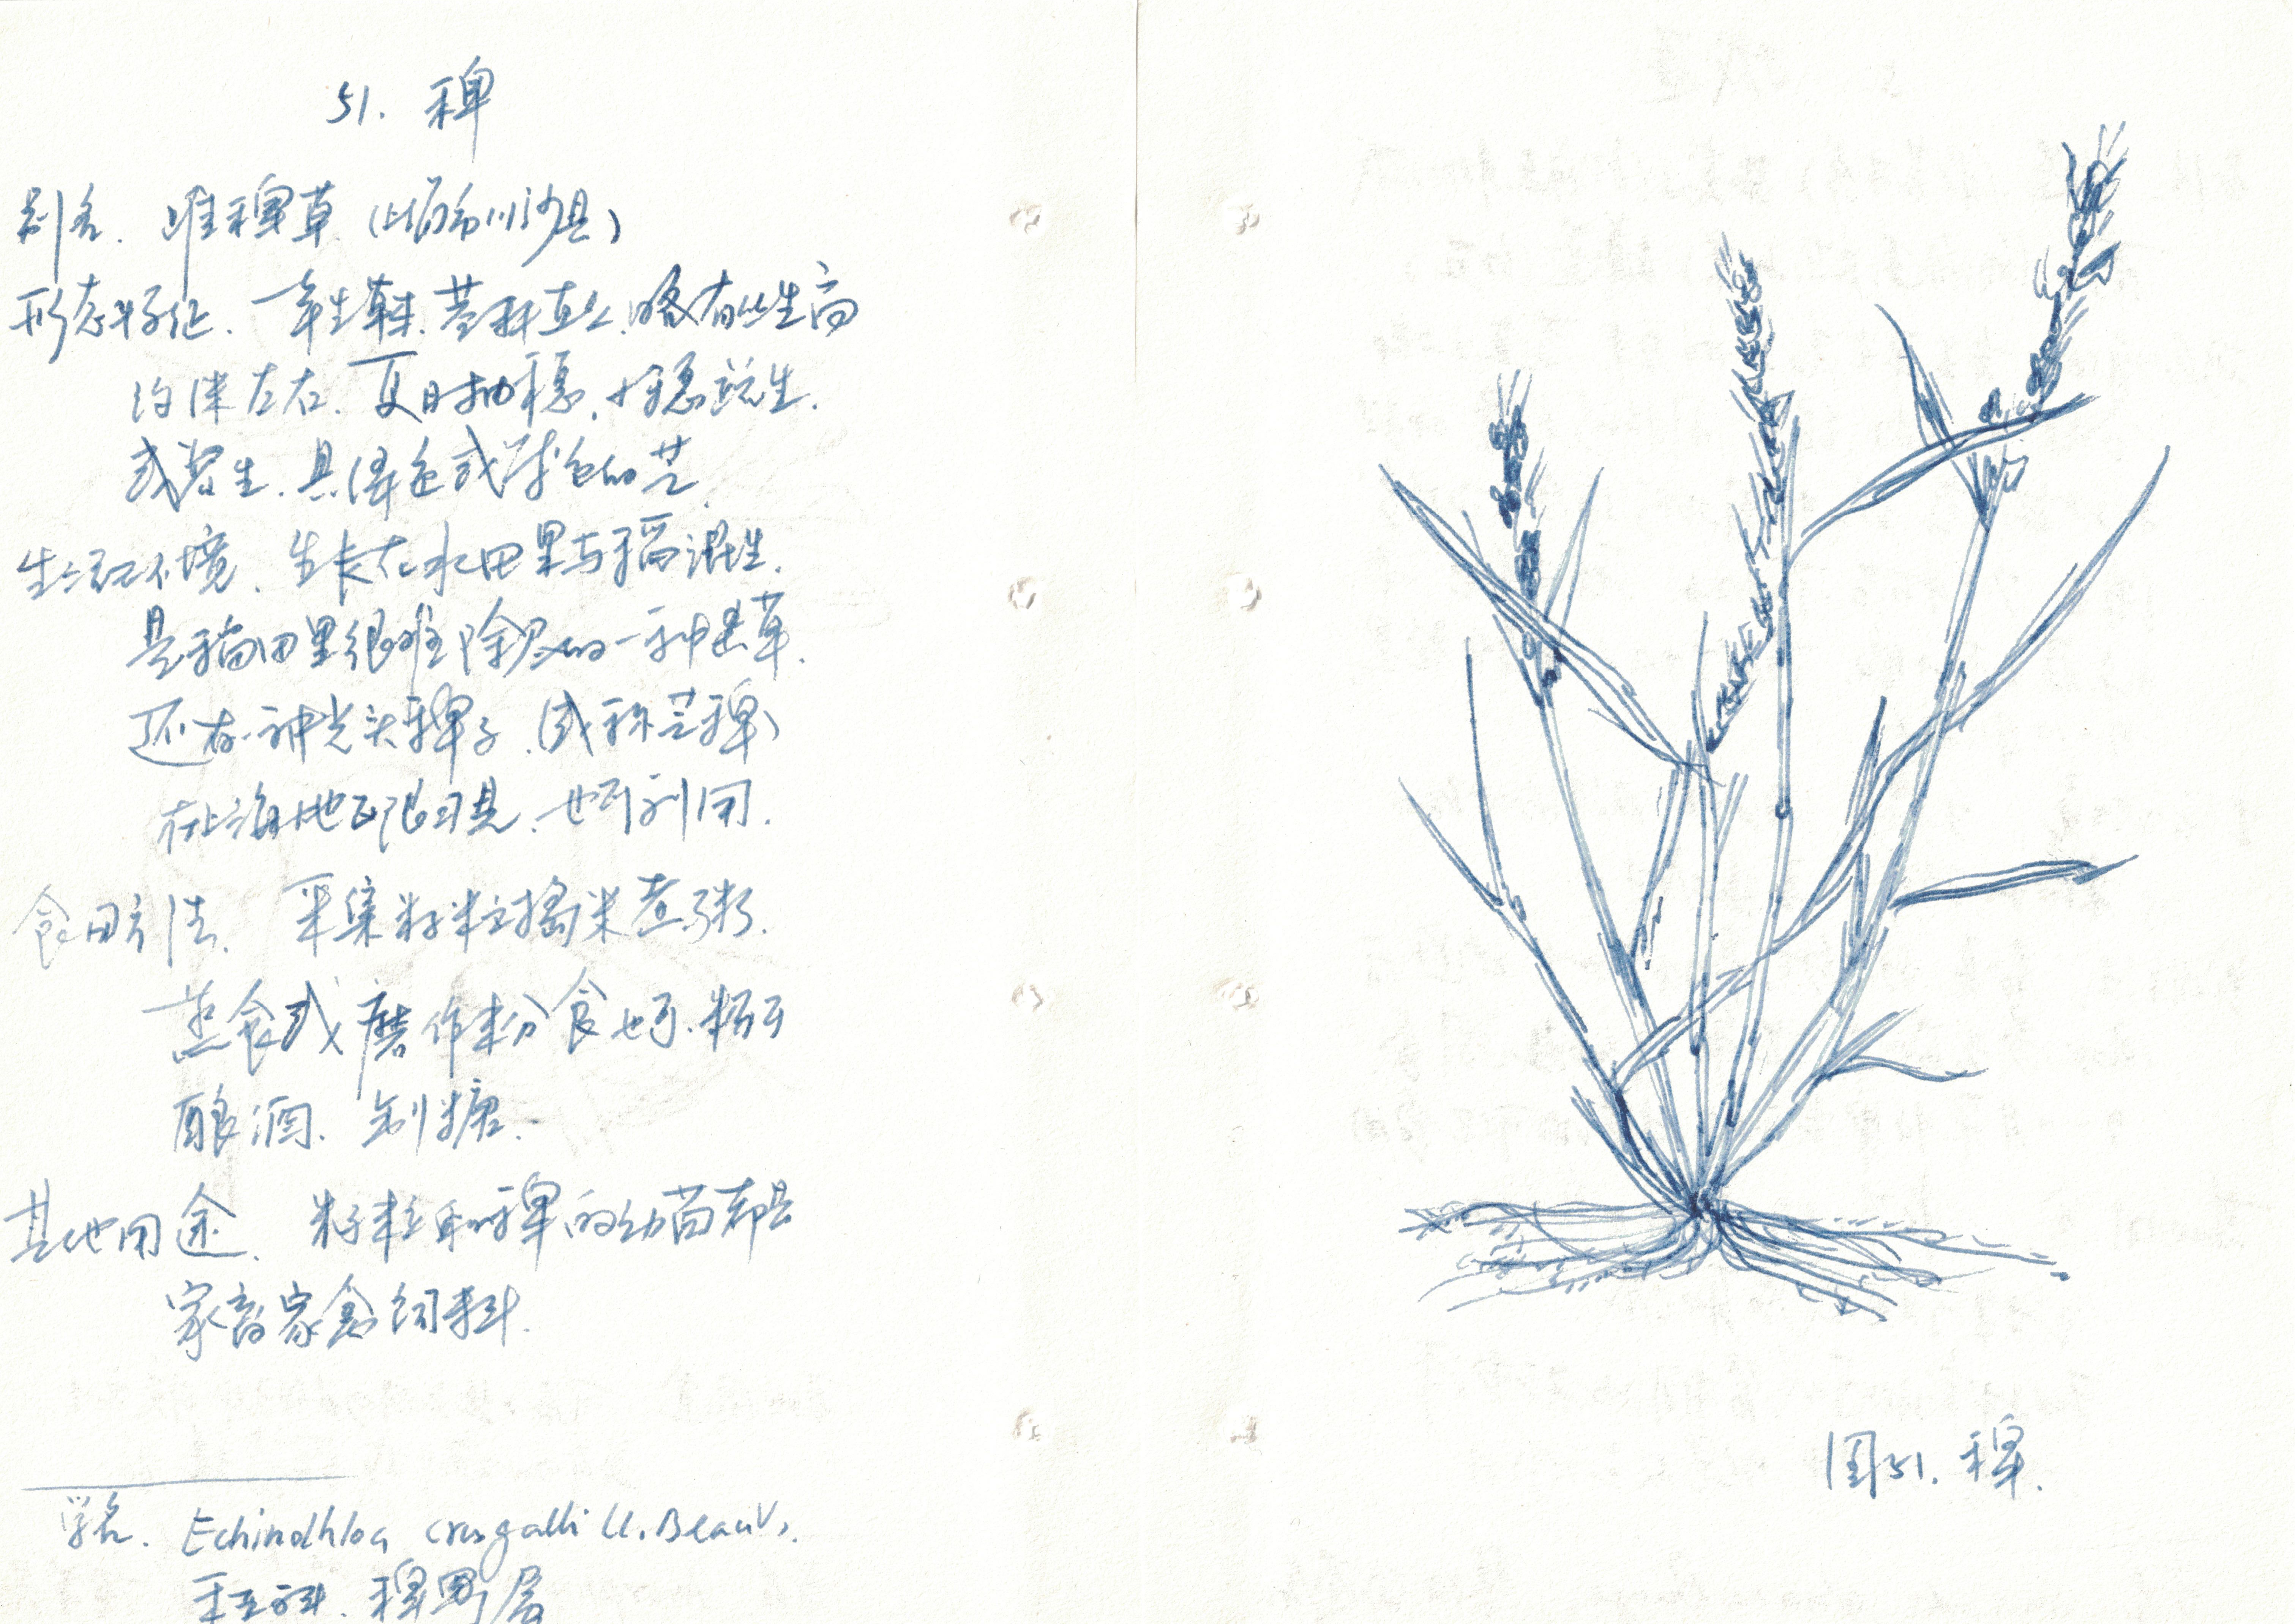 51. 稗
别名. 稗草 (上海市川沙县)
形态特征. 一年生草本. 茎秆直立. 略有丛生高
约1米左右. 夏日抽穗. 小穗生.
或紫生. 具绿色或紫色的芒.
生活环境. 生长在水田里与稻混生.
是稻田里很难除尽的一种杂草.
还有一种光头稗子. (或称芒稗)
在上海地区很习见. 也可利用.
食用方法. 采集籽粒捣米煮粥.
蒸食或磨作粉食也可. 籽可
酿酒. 制糖.
其他用途. 籽粒和稗的幼苗都是
家畜家禽饲料.
学名. Echinochloa crusgalli (L. Beauv.
禾本科. 稗属
图51. 稗.